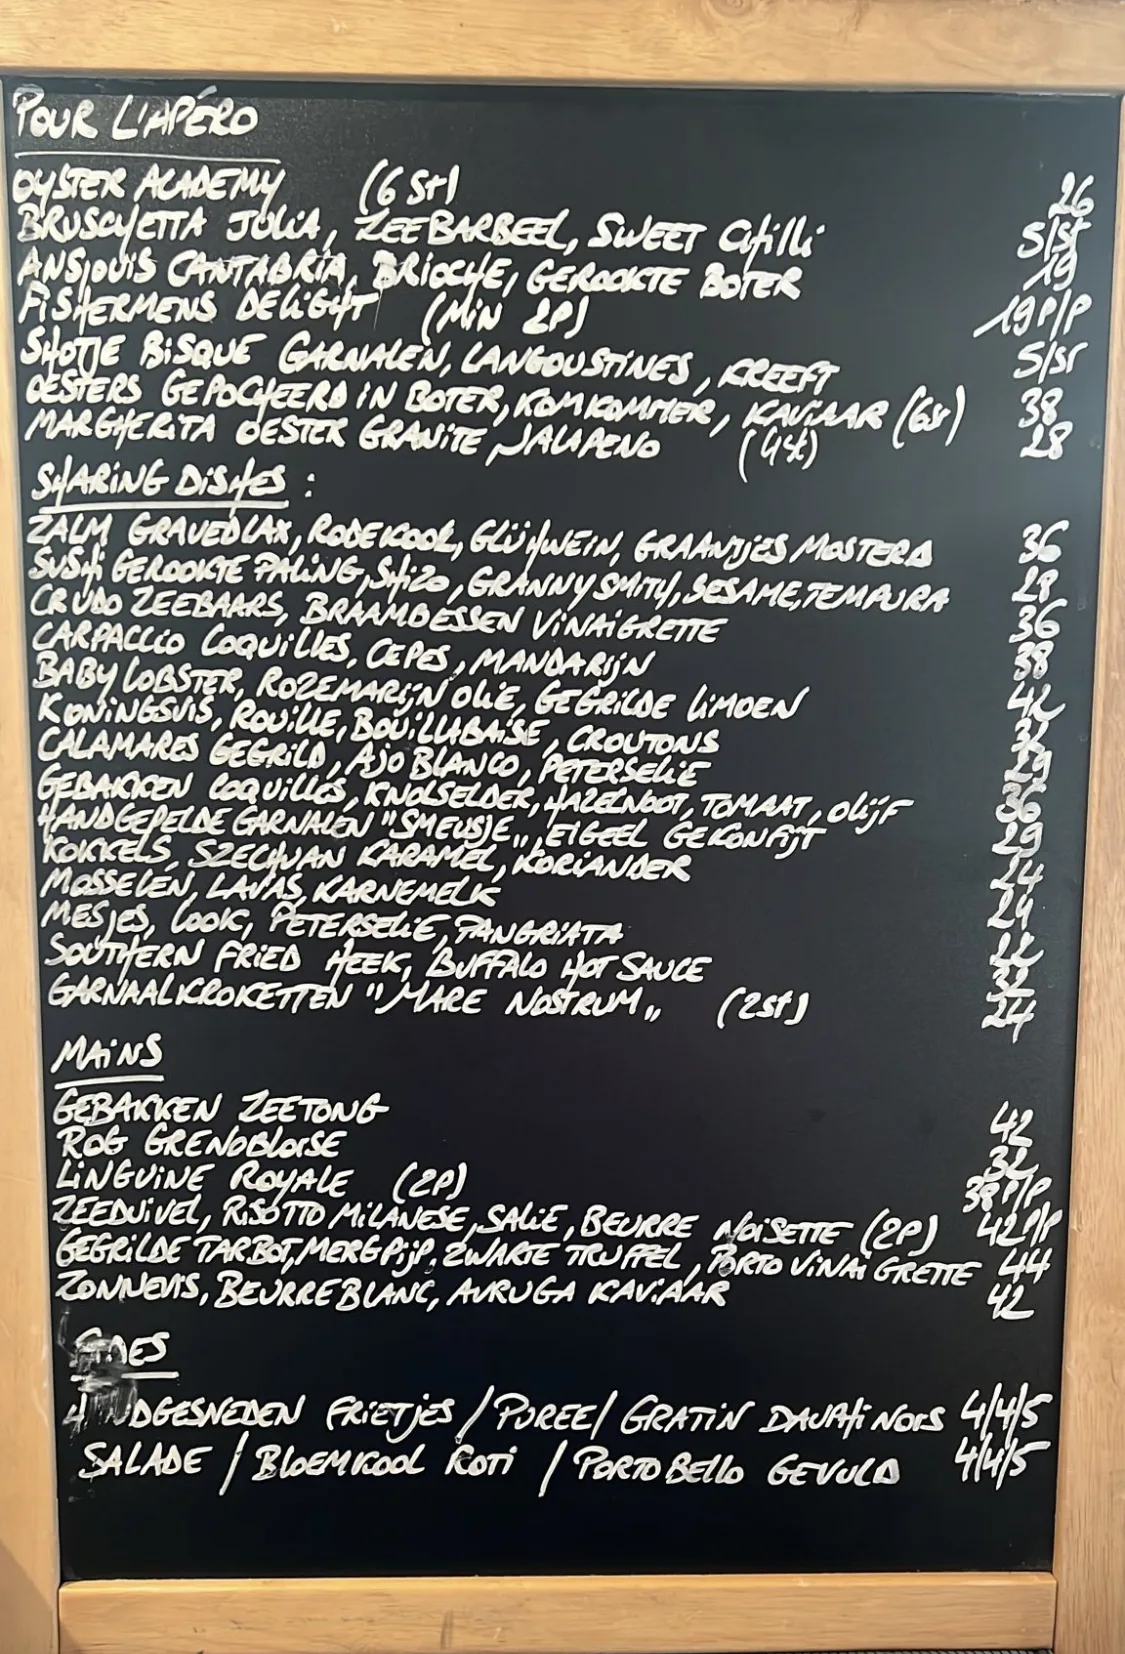 POUR L'APÉRO
OYSTER ACADEMY (6 St) 26
BRUSCHETTA JULIA, ZEEBARBEEL, SWEET CHILLI 5/St
ANSJOVIS CANTABRIA, BRIOCHE, GEROOKTE BOTER 19
FISHERMENS DELIGHT (MIN 2P) 19 P/P
SHOTJE BISQUE GARNALEN, LANGOUSTINES, KREEFT 5/ST
OESTERS GEPOCHEERD IN BOTER, KOMKOMMER, KAVIAAR (6st) 38
MARGHERITA OESTER GRANITE, JALAPENO (4st) 28
SHARING DISHES :
ZALM GRAVEDLAX, RODEKOOL, GLÜHWEIN, GRAANTJES MOSTERD 36
SUSHI GEROOKTE PALING, SHIZO, GRANNY SMITH, SESAME, TEMPURA 28
CRUDO ZEEBAARS, BRAAMBESSEN VINAIGRETTE 36
CARPACCIO COQUILLES, CEPES, MANDARIJN 38
BABY LOBSTER, ROZEMARIJN OLIE, GEGRILDE LIMOEN 42
KONINGSVIS, ROUILLE, BOUILLABAISE, CROUTONS
CALAMARES GEGRILD, AJO BLANCO, PETERSELIE 29
GEBAKKEN COQUILLES, KNOLSELDER, HAZELNOOT, TOMAAT, OLIJF 36
HANDGEPELDE GARNALEN "SMEUSJE", EIGEEL GEKONFIJT 29
KOKKELS, SZECHUAN KARAMEL, KORIANDER 24
MOSSELEN, LAVAS, KARNEMELK 24
MESJES, LOOK, PETERSELIE, PANGRIATA 22
SOUTHERN FRIED HEEK, BUFFALO HOT SAUCE 32
GARNAALKROKETTEN "MARE NOSTRUM" (2st) 24
MAINS
GEBAKKEN ZEETONG 42
ROG GRENOBLOISE 32
LINGUINE ROYALE (2P) 38 P/P
ZEEDUIVEL, RISOTTO MILANESE, SALIE, BEURRE NOISETTE (2P) 42 P/P
GEGRILDE TARBOT, MERGPIJP, ZWARTE TRUFFEL, PORTO VINAIGRETTE 44
ZONNEVIS, BEURRE BLANC, AVRUGA KAVIAAR 42
SIDES
HANDGESNEDEN FRIETJES / PUREE / GRATIN DAUPHINOIS 4/4/5
SALADE / BLOEMKOOL ROTI / PORTOBELLO GEVULD 4/4/5